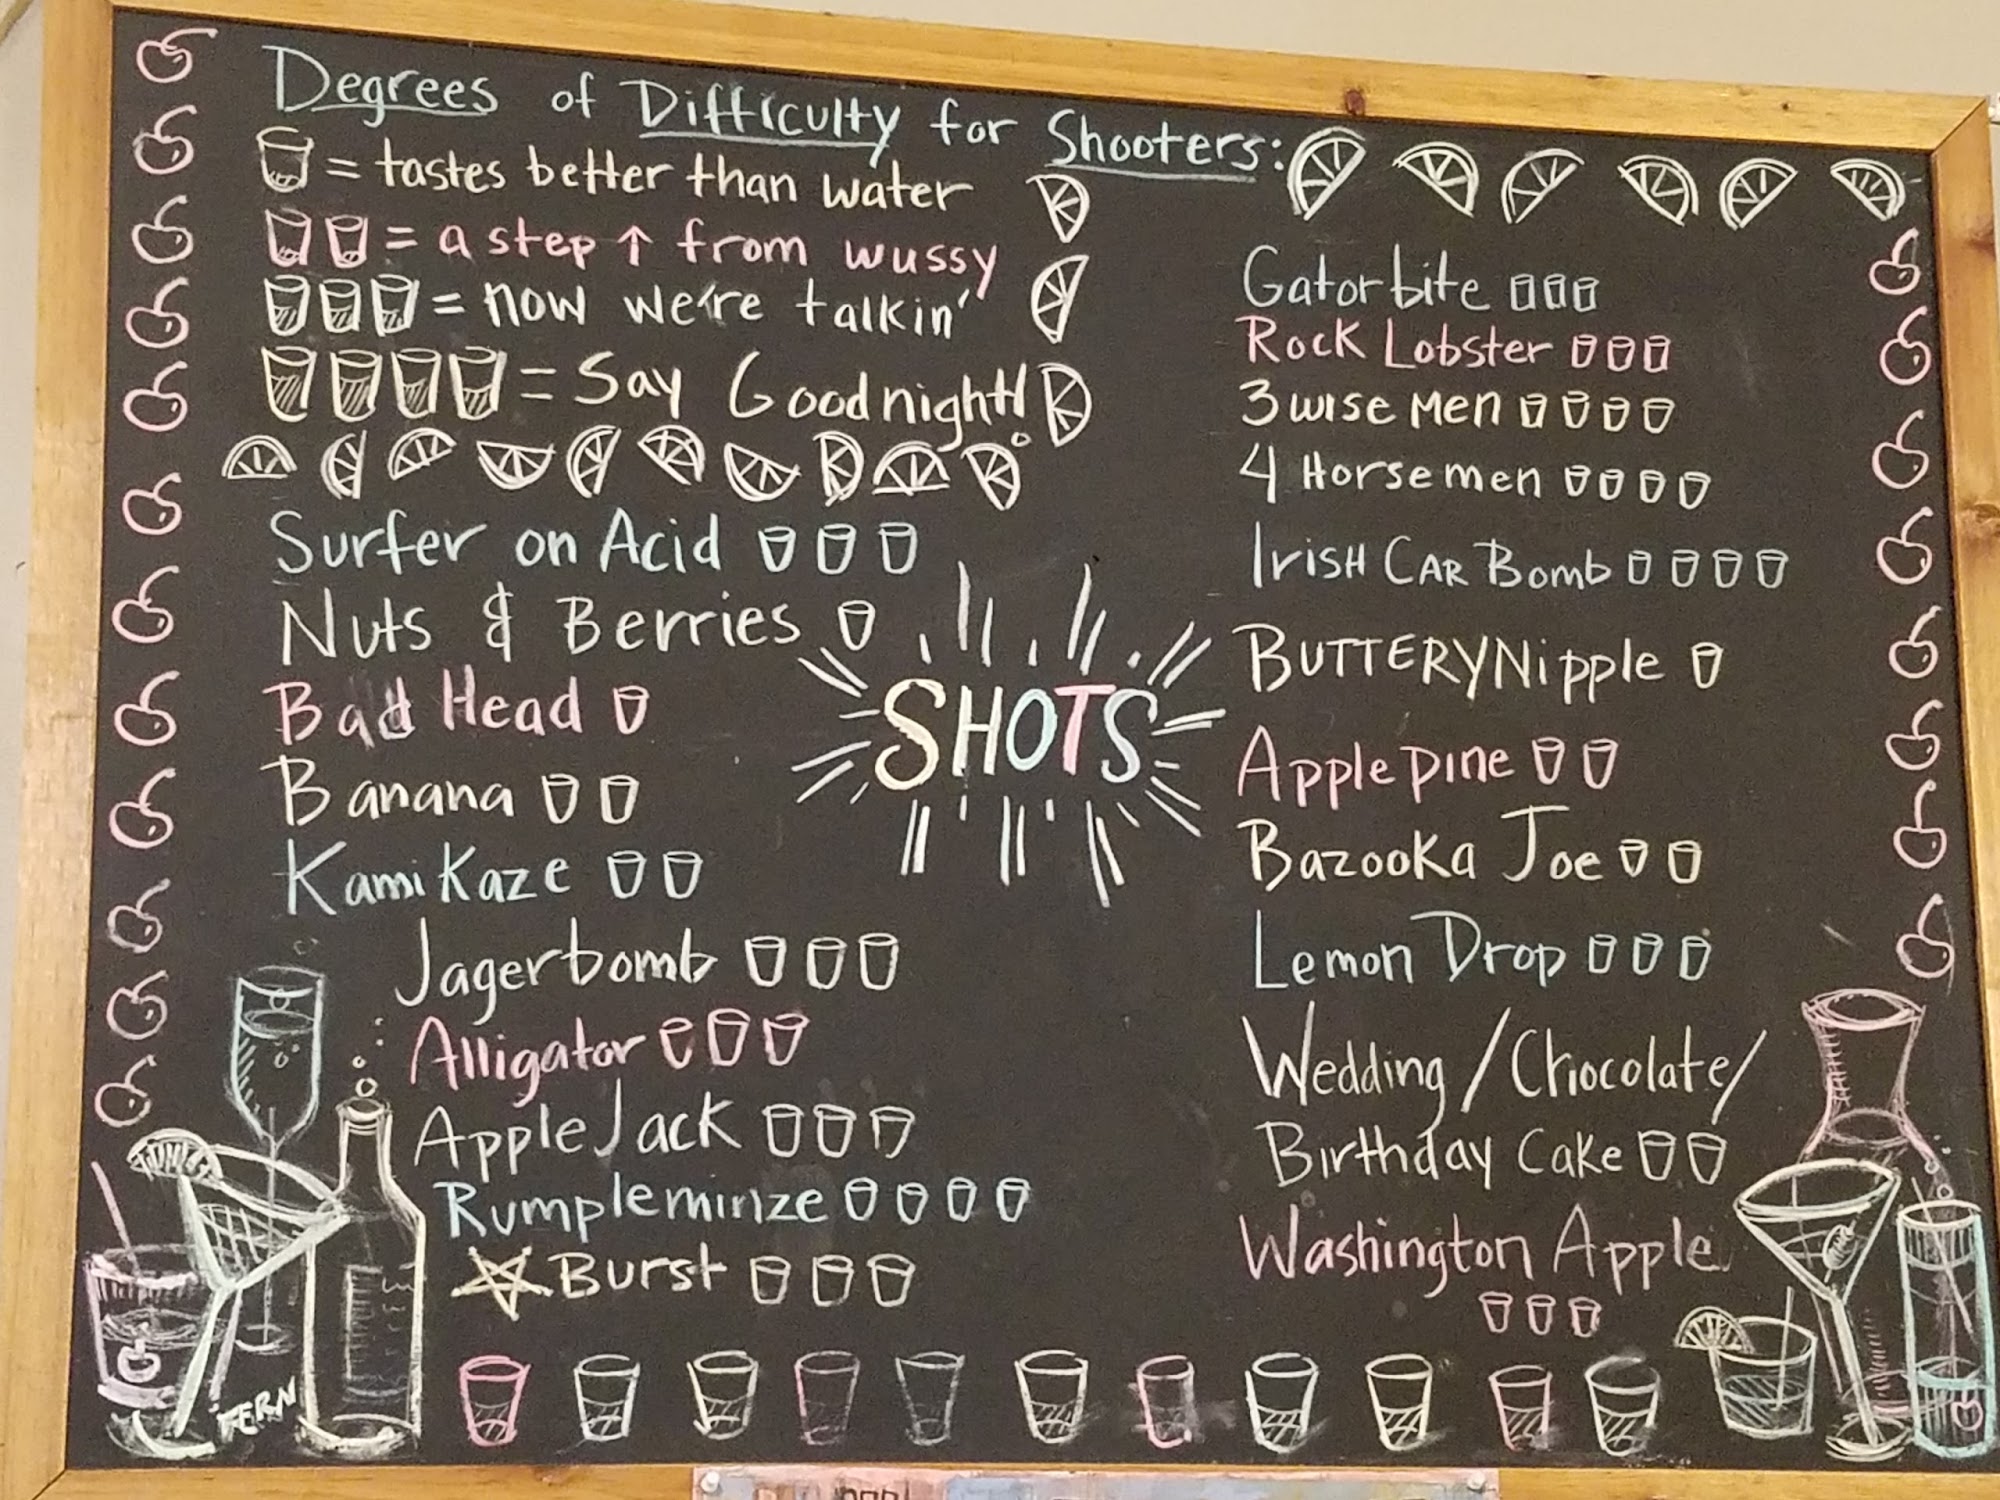 Degrees of Difficulty for Shooters:
= tastes better than water
= a step ↑ from wussy
= now we're talkin'
= Say Goodnight!
Surfer on Acid
Nuts & Berries
Bad Head
Banana
Kamikaze
Jagerbomb
Alligator
Apple Jack
Rumpleminze
Burst
FERN
SHOTS
Gatorbite
Rock Lobster
3 wise Men
4 Horsemen
Irish Car Bomb
BUTTERY Nipple
Applepine
Bazooka Joe
Lemon Drop
Wedding / Chocolate /
Birthday Cake
Washington Apple